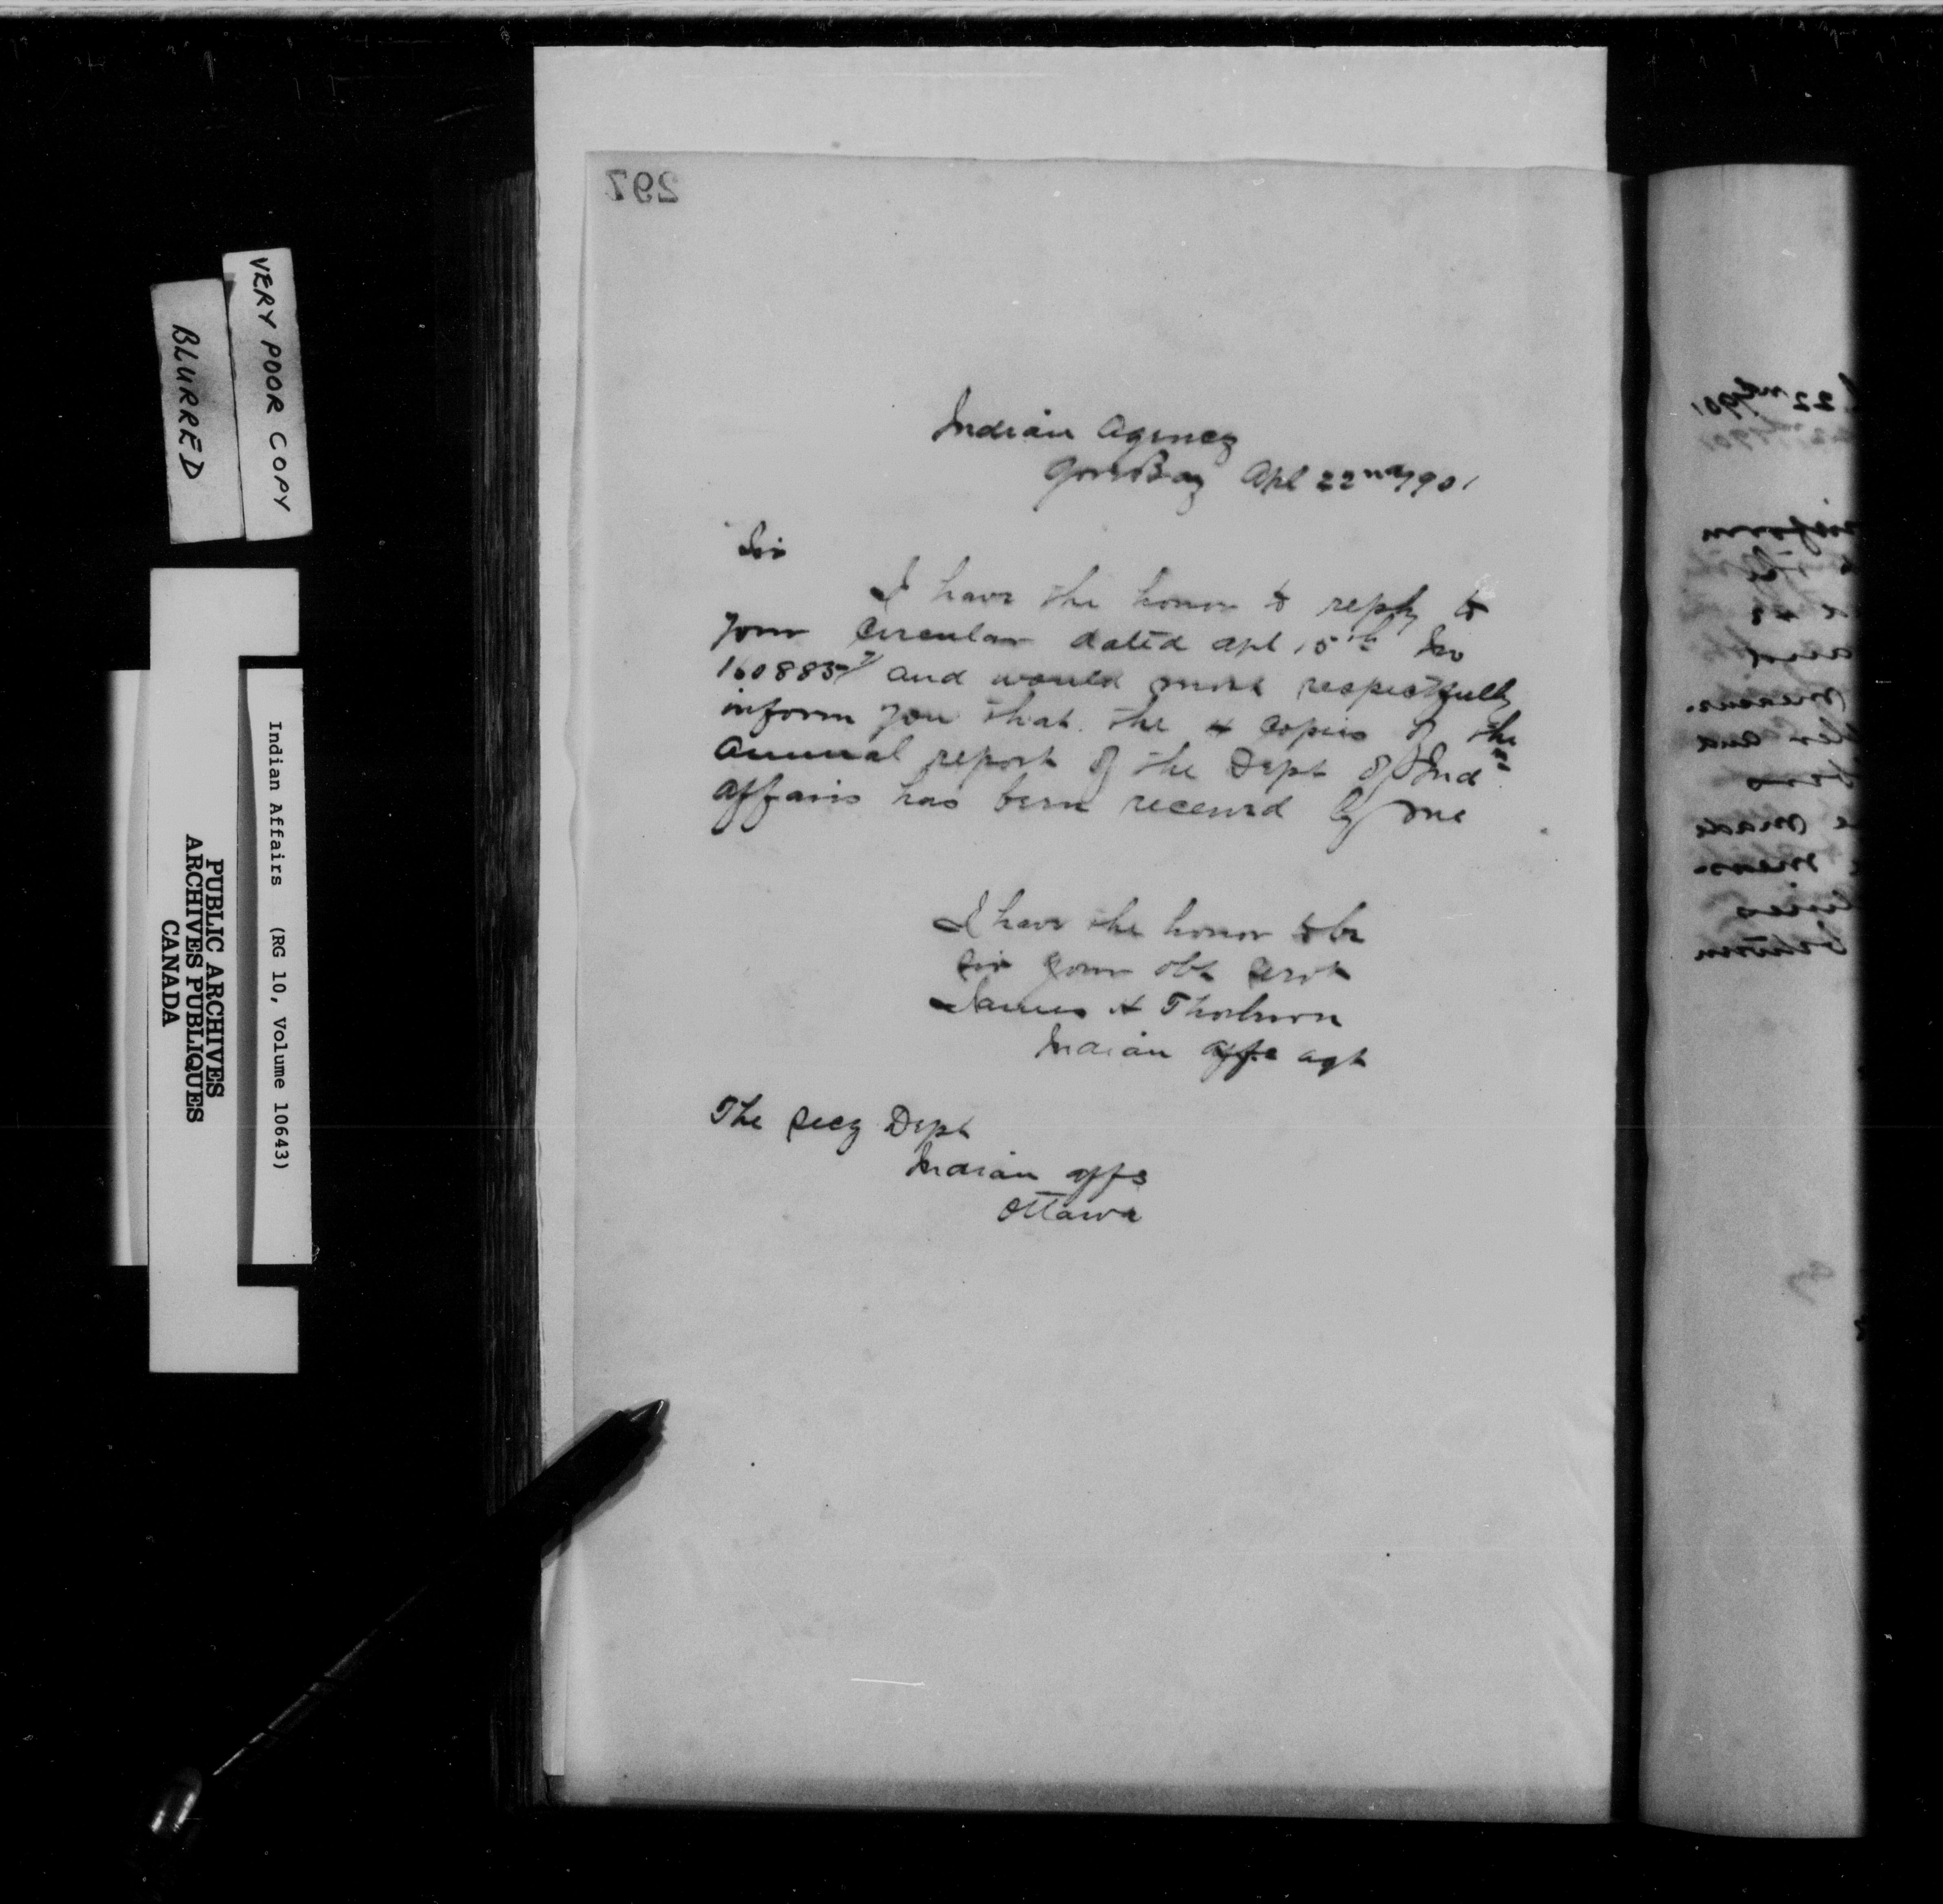 VERY POOR COPY
BLURRED
Indian Affairs (RG 10, Volume 10643)
PUBLIC ARCHIVES
ARCHIVES PUBLIQUES
CANADA
297
Indian Agency
Gore Bay Apl 22nd 1901
Sir
I have the honor to reply to
your Circular dated apl 15th No
160883 and would most respectfully
inform you that the 4 copies of the
Annual report of the Dept of Indn
Affairs has been received by me
I have the honor to be
Sir your obt servt
James H Thorburn
Indian affs agt
The Secy Dept
Indian affs
Ottawa
22nd 1901
inform
and
made